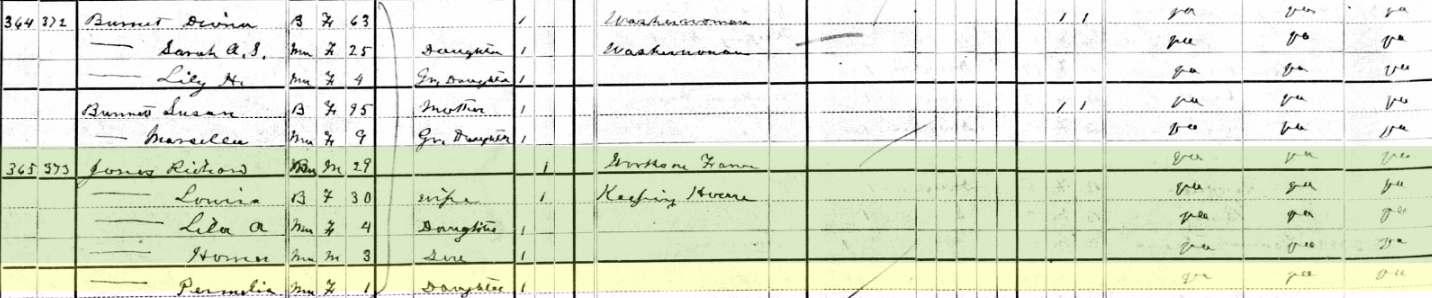 364 372 Burnet B F 63 1 Washerwoman 1 1 ya ya ya
— Sarah A. J. Mu F 25 Daughter 1 Washerwoman ya ya ya
— Lily H. Mu F 4 Gr. Daughter 1 ya ya
Burnett Susan B F 95 Mother 1 1 1 ya ya ya
— Marsella Mu F 9 Gr. Daughter 1 ya ya ya
365 373 Jones Richard M 29 1 Works on Farm ya ya ya
— Louisa B F 30 wife 1 Keeping House ya ya ya
— Lila A Mu F 4 Daughter 1 ya ya ya
— Homer Mu M 3 Son 1 ya ya ya
— Permelia Mu F 1 Daughter 1 ya ya ya